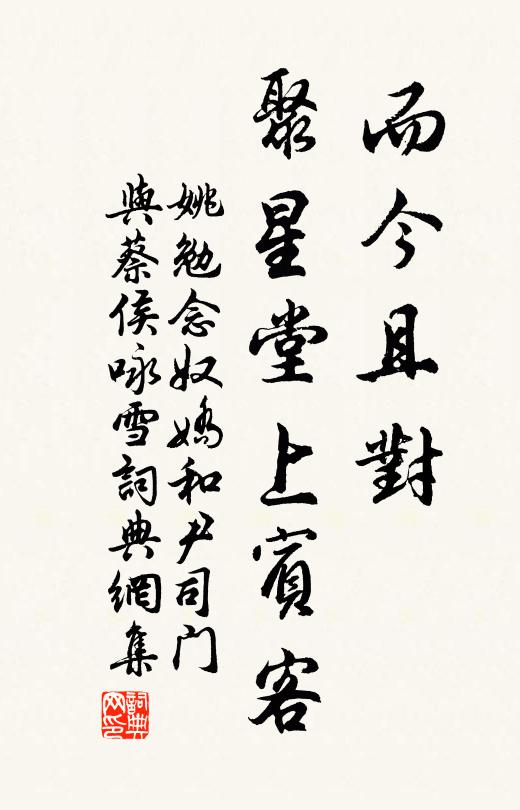 而今且對
聚星堂上賓客
姚勉念奴嬌和尹司门
與蔡侯咏雪詞典網集
詞典
网印